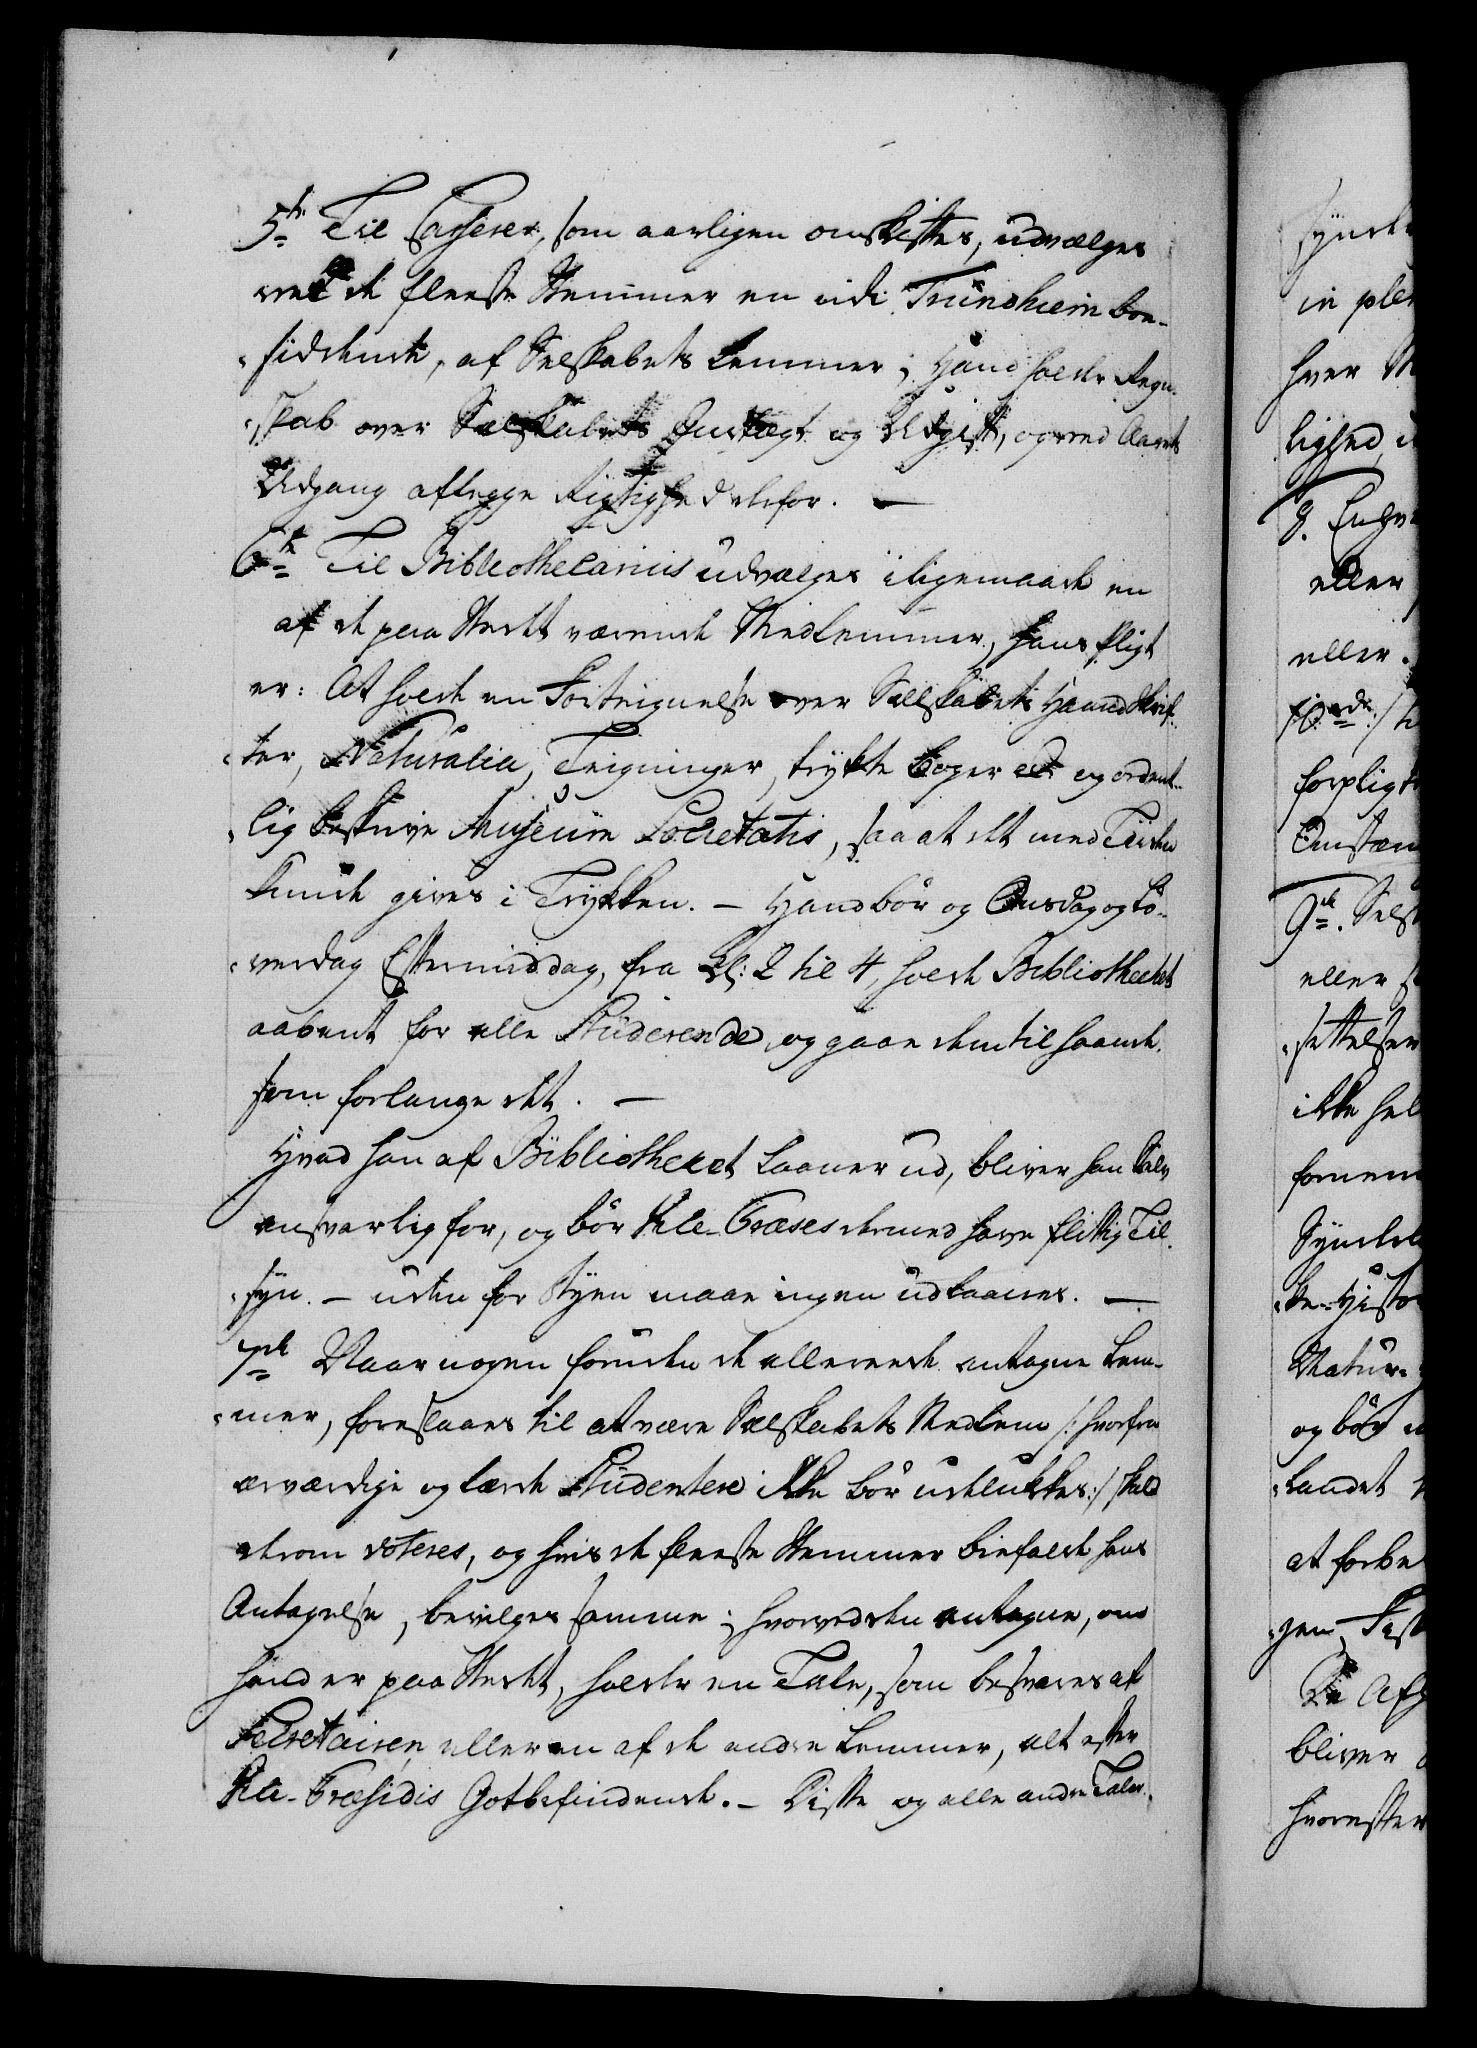 5te Til Casserer, som aarligen omskiftes, udvælges
ved de fleeste Stemmer en udi Trundhiem boe-
siddende, af Selskabets Lemmer; Hand holder Regn-
skab over Selskabets Indtægt og Udgift, og ved Aarets
Udgang aflegge Rigtighed derfor. —
6te Til Bibliothecarius udvælges iligemaade en
af de paa Stedet værende Medlemmer, hans Pligt
er: At holde en Fortegnelse over Selskabets Haandskrif-
ter, Naturalia, Tegninger, trykte Bøger etc og ordent-
lig beskrive Museum Societatis, saa at det med Tiden
kunde gives i Trykken. — Hand bør og Onsdag og Lø-
verdag Eftermiddag, fra Kl: 2 til 4, holde Bibliothecket
aabent for alle Studerende, og gaae dem til haande
som forlange det. —
Hvad han af Bibliotheket laaner ud, bliver han selv
ansvarlig for, og bør Vice-Præses dermed have flittig Til-
syn. — uden for Byen maae ingen udlaanes. —
7de Naar nogen foruden de allerede antagne Lem-
mer, foreslaaes til at være Selskabets Medlem /: hvorfra
ærværdige og lærde Studentere ikke bør udelukkes :/ skal
derom voteres, og hvis de fleeste Stemmer biefalde hans
Antagelse, bevilges samme; hvorved den antagne, om
hand er paa Stedet, holder en Tale, som besvares af
Secretairen, eller en af de andre Lemmer, alt efter
Vice-Præsidis Gotbefindende. — Disse og alle andre Taler